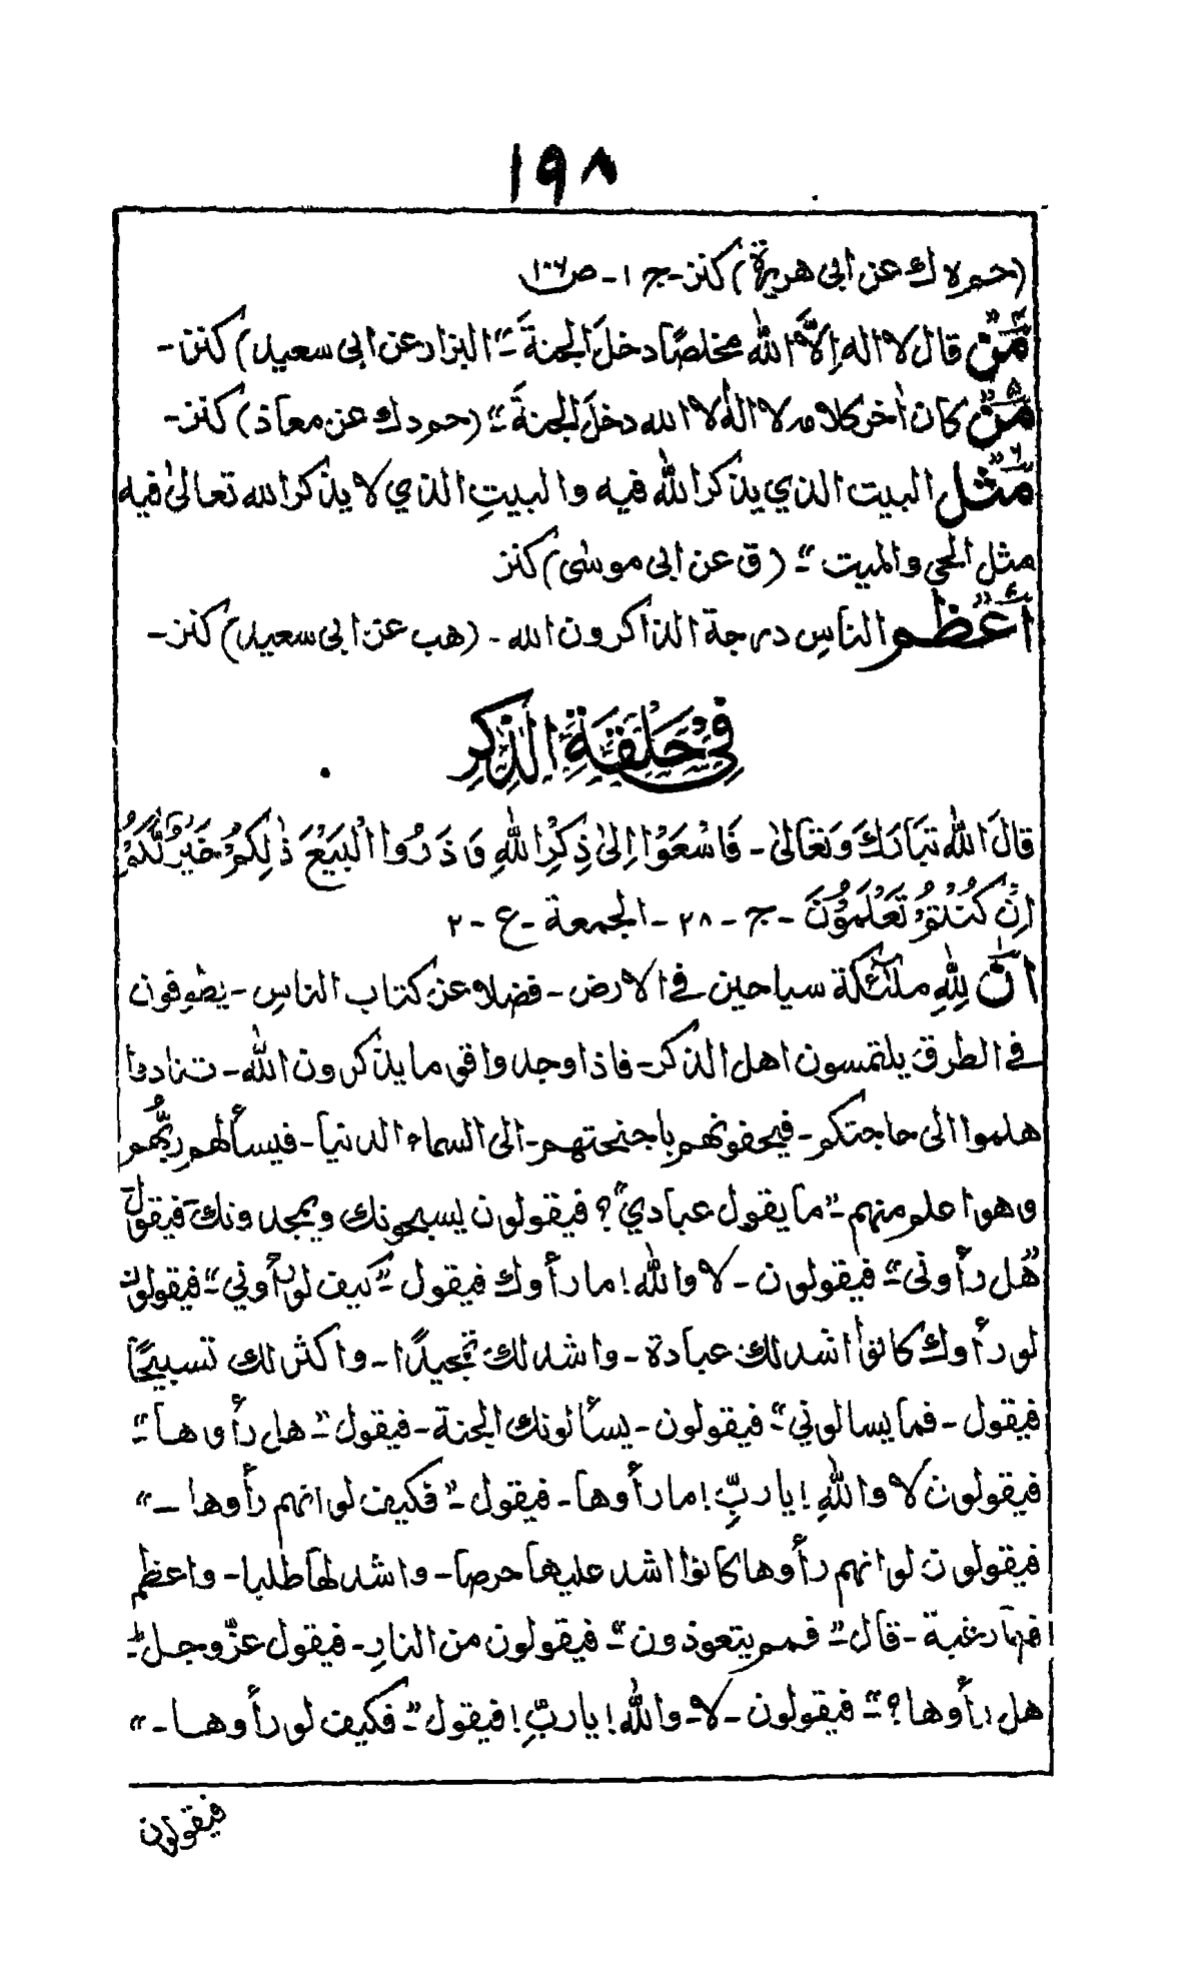 ١٩٨
(حم ہ ك عن ابى هريرة) كنز - ج ١ - ص ١٠٦
مَنْ قال لا اله اِلاَّ اللّٰه مخلصًا دخلَ الجنةَ -" البزار عن ابى سعيد) كنز -
مَنْ كان اٰخر كلامه لا الٰه الا الله دخلَ الجنةَ -" (حم د ك عن معاذ) كنز -
مَثَل البيت الذي يذكر اللّٰه فيه والبيتِ الذي لا يذكر الله تعالىٰ فيه
مثل الحي والميت -" (ق عن ابى موسٰى) كنز
اَعْظم الناسِ درجة الذاكرون الله - (هب عن ابى سعيد) كنز -
فِىْ حَلْقَةِ الذِّكْرِ
قالَ اللّٰه تَبَارَكَ وَتَعَالىٰ - فَاسْعَوْا اِلىٰ ذِكْرِ اللّٰهِ وَ ذَرُوا الْبَيْعَ ذٰلِكُمْ خَيْرٌ لَّكُمْ
اِنْ كُنْتُمْ تَعْلَمُوْنَ - ج - ٢٨ - الجمعة - ع - ٢
انّ لِلّٰهِ ملٰئكة سياحين فى الارض - فضلا عن كتاب الناسِ - يطوفون
فى الطرق يلتمسون اهل الذكر - فاذا وجدوا قوما يذكرون اللّٰه - تنادوا
هلموا الى حاجتكم - فيحفونهم باجنحتهم - الى السماء الدنيا - فيسألهم ربُّهم
وهو اعلم منهم -" ما يقول عبادي"؟ فيقولون يسبحونك ويمجدونك فيقول
"هل رأونى -" فيقولون - لا واللّٰه! ما رأوك فيقول -" كيف لو رأوني -" فيقولون
لو رأوك كانوا اشد لك عبادة - واشد لك تمجيدًا - واكثر لك تسبيحًا
فيقول - فما يسالوني -" فيقولون - يسألونك الجنة - فيقول -" هل رأوها -"
فيقولون لا واللّٰهِ! يا ربِّ! ما رأوها - فيقول -" فكيف لو انهم رأوها -"
فيقولون لو انهم رأوها كانوا اشد عليها حرصا - واشد لها طلبا - واعظم
فيها رغبة - قال -" فمم يتعوذون -" فيقولون من النارِ - فيقول عزّ وجل -"
هل رأوها؟ -" فيقولون - لا - واللّٰه! يا ربِّ! فيقول -" فكيف لو رأوهـا -"
فيقولون